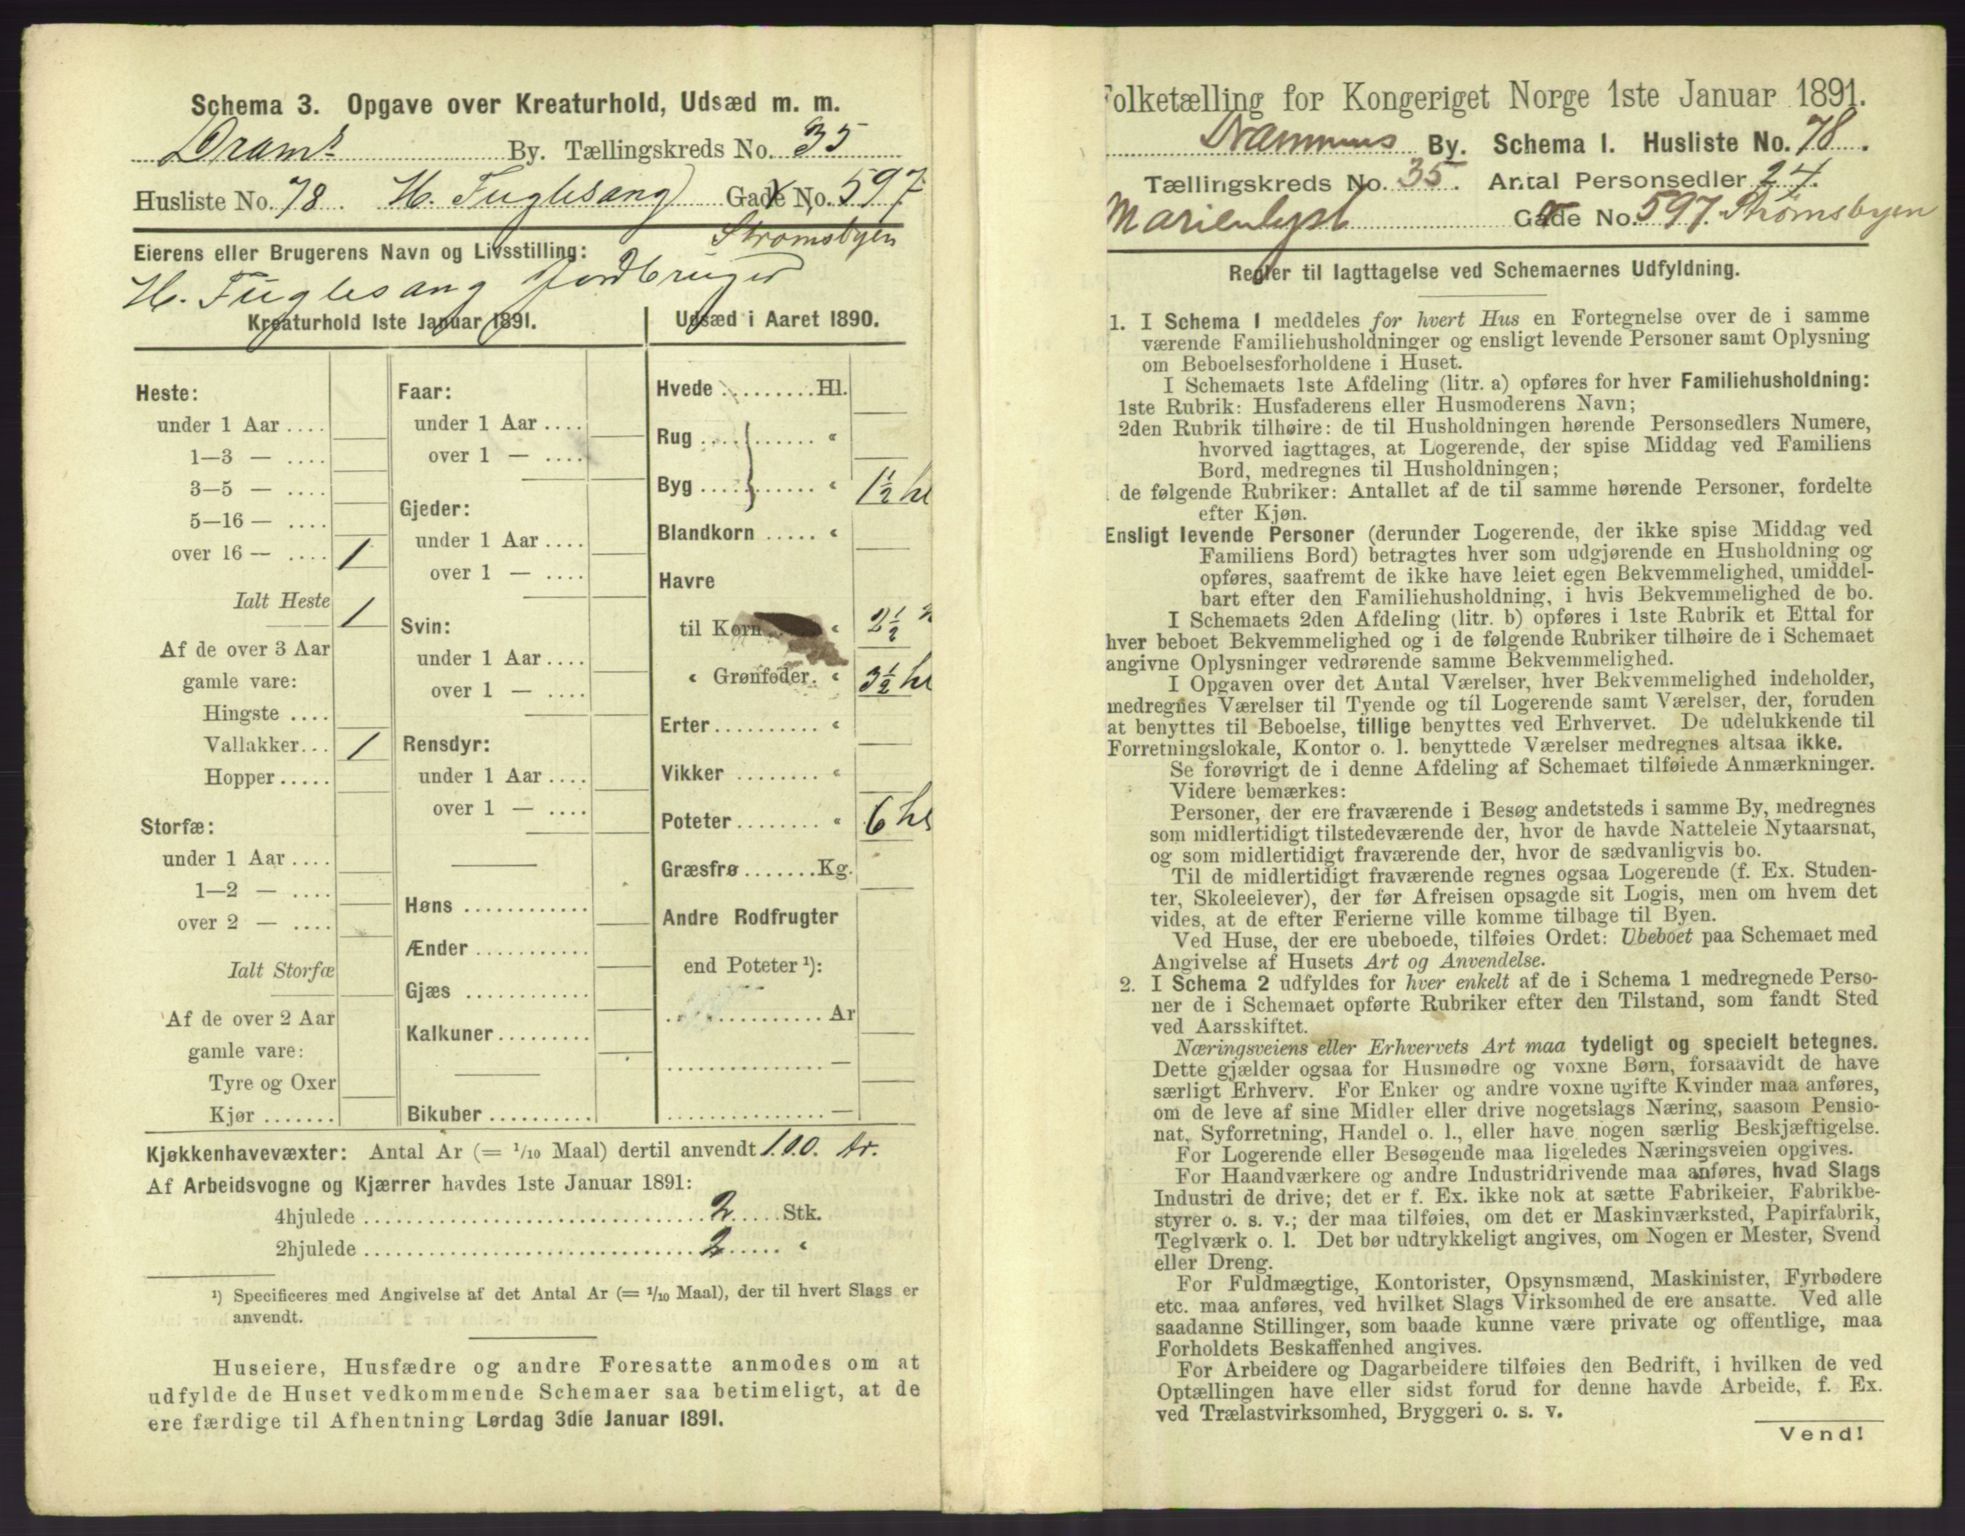 Schema 3. Opgave over Kreaturhold, Udsæd m. m.
Drams By. Tællingskreds No. 35
Husliste No. 78 H. Fuglesang Gade No. 597
Strømsbyen
Eierens eller Brugerens Navn og Livsstilling:
H. Fuglesang Jordbruger
Kreaturhold 1ste Januar 1891.
Heste:
under 1 Aar ....
1—3 — ....
3—5 — ....
5—16 — ....
over 16 — .... 1
Ialt Heste 1
Af de over 3 Aar
gamle vare:
Hingste ....
Vallakker... 1
Hopper.....
Storfæ:
under 1 Aar ....
1—2 — ....
over 2 — ....
Ialt Storfæ
Af de over 2 Aar
gamle vare:
Tyre og Oxer
Kjør .......
Faar:
under 1 Aar ....
over 1 — ....
Gjeder:
under 1 Aar ....
over 1 — ....
Svin:
under 1 Aar ....
over 1 — ....
Rensdyr:
under 1 Aar ....
over 1 — ....
Høns ............
Ænder ...........
Gjæs ............
Kalkuner .........
Bikuber ..........
Udsæd i Aaret 1890.
Hvede .......... Hl.
Rug ............ "
Byg ............ " 1½ hl
Blandkorn ..... "
Havre
til Korn.. " 2½ "
" Grønfoder. " 3½ hl
Erter.......... "
Vikker ........ "
Poteter........ " 6 hl
Græsfrø ....... Kg.
Andre Rodfrugter
end Poteter ¹):
............... Ar
............... —
............... —
Kjøkkenhavevæxter: Antal Ar (= 1/10 Maal) dertil anvendt 100. Ar.
Af Arbeidsvogne og Kjærrer havdes 1ste Januar 1891:
4hjulede .................. 2 ..... Stk.
2hjulede .................. 2 ..... "
¹) Specificeres med Angivelse af det Antal Ar (= 1/10 Maal), der til hvert Slags er
anvendt.
Huseiere, Husfædre og andre Foresatte anmodes om at
udfylde de Huset vedkommende Schemaer saa betimeligt, at de
ere færdige til Afhentning Lørdag 3die Januar 1891.
Folketælling for Kongeriget Norge 1ste Januar 1891.
Drammens By. Schema I. Husliste No. 78.
Tællingskreds No. 35. Antal Personsedler 24.
Marienlyst Gade No. 597 Strømsbyen
Regler til Iagttagelse ved Schemaernes Udfyldning.
1. I Schema I meddeles for hvert Hus en Fortegnelse over de i samme
værende Familiehusholdninger og ensligt levende Personer samt Oplysning
om Beboelsesforholdene i Huset.
I Schemaets 1ste Afdeling (litr. a) opføres for hver Familiehusholdning:
1ste Rubrik: Husfaderens eller Husmoderens Navn;
2den Rubrik tilhøire: de til Husholdningen hørende Personsedlers Numere,
hvorved iagttages, at Logerende, der spise Middag ved Familiens
Bord, medregnes til Husholdningen;
de følgende Rubriker: Antallet af de til samme hørende Personer, fordelte
efter Kjøn.
Ensligt levende Personer (derunder Logerende, der ikke spise Middag ved
Familiens Bord) betragtes hver som udgjørende en Husholdning og
opføres, saafremt de ikke have leiet egen Bekvemmelighed, umiddel-
bart efter den Familiehusholdning, i hvis Bekvemmelighed de bo.
I Schemaets 2den Afdeling (litr. b) opføres i 1ste Rubrik et Ettal for
hver beboet Bekvemmelighed og i de følgende Rubriker tilhøire de i Schemaet
angivne Oplysninger vedrørende samme Bekvemmelighed.
I Opgaven over det Antal Værelser, hver Bekvemmelighed indeholder,
medregnes Værelser til Tyende og til Logerende samt Værelser, der, foruden
at benyttes til Beboelse, tillige benyttes ved Erhvervet. De udelukkende til
Forretningslokale, Kontor o. l. benyttede Værelser medregnes altsaa ikke.
Se forøvrigt de i denne Afdeling af Schemaet tilføiede Anmærkninger.
Videre bemærkes:
Personer, der ere fraværende i Besøg andetsteds i samme By, medregnes
som midlertidigt tilstedeværende der, hvor de havde Natteleie Nytaarsnat,
og som midlertidigt fraværende der, hvor de sædvanligvis bo.
Til de midlertidigt fraværende regnes ogsaa Logerende (f. Ex. Studen-
ter, Skoleelever), der før Afreisen opsagde sit Logis, men om hvem det
vides, at de efter Ferierne ville komme tilbage til Byen.
Ved Huse, der ere ubeboede, tilføies Ordet: Ubeboet paa Schemaet med
Angivelse af Husets Art og Anvendelse.
2. I Schema 2 udfyldes for hver enkelt af de i Schema 1 medregnede Perso-
ner de i Schemaet opførte Rubriker efter den Tilstand, som fandt Sted
ved Aarsskiftet.
Næringsveiens eller Erhvervets Art maa tydeligt og specielt betegnes.
Dette gjælder ogsaa for Husmødre og voxne Børn, forsaavidt de have
særligt Erhverv. For Enker og andre voxne ugifte Kvinder maa anføres,
om de leve af sine Midler eller drive nogetslags Næring, saasom Pensio-
nat, Syforretning, Handel o. l., eller have nogen særlig Beskjæftigelse.
For Logerende eller Besøgende maa ligeledes Næringsveien opgives.
For Haandværkere og andre Industridrivende maa anføres, hvad Slags
Industri de drive; det er f. Ex. ikke nok at sætte Fabrikeier, Fabrikbe-
styrer o. s. v.; der maa tilføies, om det er Maskinværksted, Papirfabrik,
Teglværk o. l. Det bør udtrykkeligt angives, om Nogen er Mester, Svend
eller Dreng.
For Fuldmægtige, Kontorister, Opsynsmænd, Maskinister, Fyrbødere
etc. maa anføres, ved hvilket Slags Virksomhed de ere ansatte. Ved alle
saadanne Stillinger, som baade kunne være private og offentlige, maa
Forholdets Beskaffenhed angives.
For Arbeidere og Dagarbeidere tilføies den Bedrift, i hvilken de ved
Optællingen have eller sidst forud for denne havde Arbeide, f. Ex.
ved Trælastvirksomhed, Bryggeri o. s. v.
Vend!